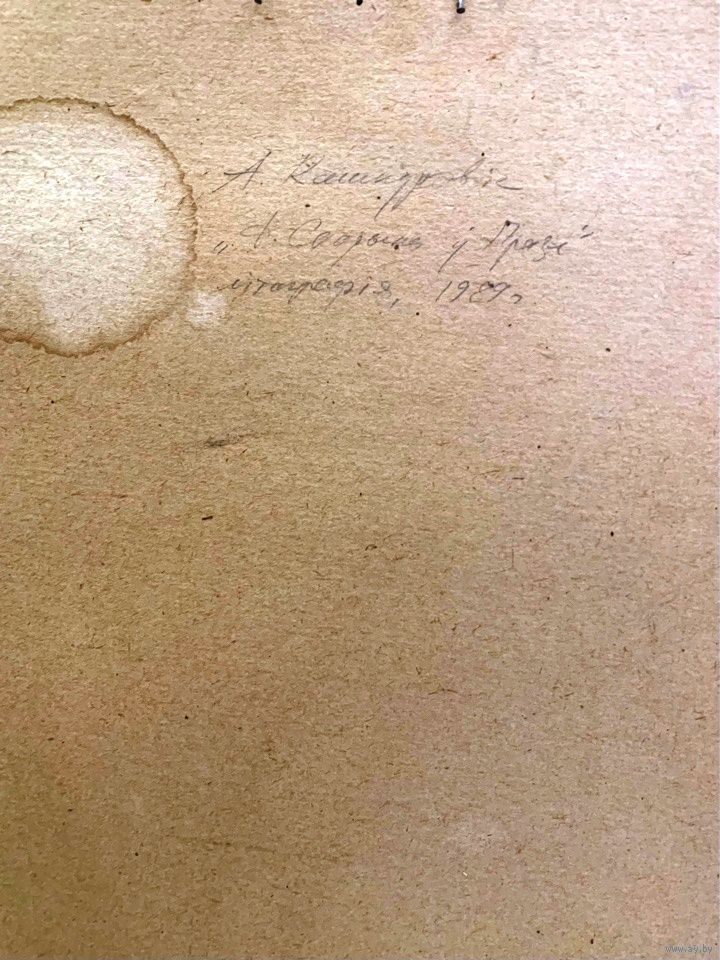 А. Кашкурэвіч
„Ф. Скарына ў Празе"
літаграфія, 1989г.
www.ay.by